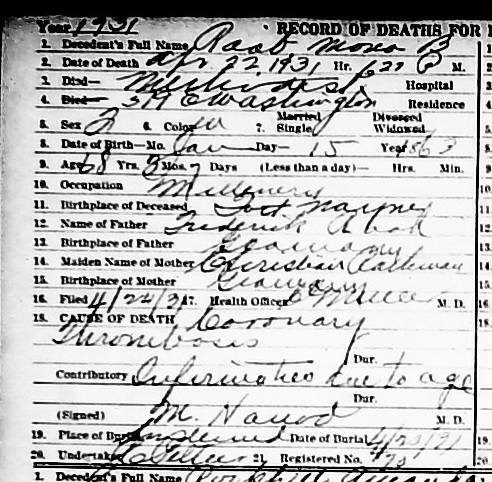 Year 1931 RECORD OF DEATHS FOR
1. Decedent's Full Name Raab Mona B
2. Date of Death Apr 22 1931 Hr. P M.
3. Died— Methodist Hospital
4. Died— 319 E Washington Residence
5. Sex F 6. Color W 7. Married Single Divorced Widowed
8. Date of Birth—Mo. Jan Day— 15 Year 1863
9. Age 68 Yrs. 3 Mos. 7 Days (Less than a day)— Hrs. Min.
10. Occupation Millinery
11. Birthplace of Deceased Fort Wayne
12. Name of Father Frederick Raab
13. Birthplace of Father Germany
14. Maiden Name of Mother Christian
15. Birthplace of Mother Germany
16. Filed 4/24/31 17. Health Officer M. D.
18. CAUSE OF DEATH Coronary
Thrombosis
Dur.
Contributory Infirmities due to age
Dur.
(Signed) M. D.
19. Place of Burial Lindenwood Date of Burial
20. Undertaker 21. Registered No.
1. Decedent's Full Name